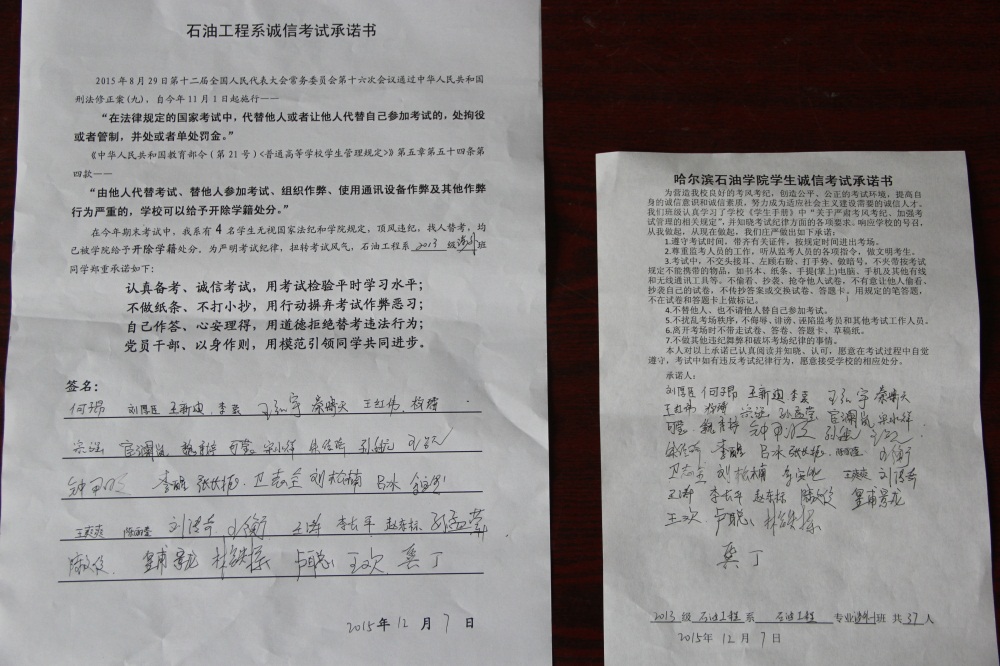 石油工程系诚信考试承诺书
2015年8月29日第十二届全国人民代表大会常务委员会第十六次会议通过中华人民共和国
刑法修正案(九)，自今年11月1日起施行——
“在法律规定的国家考试中，代替他人或者让他人代替自己参加考试的，处拘役
或者管制，并处或者单处罚金。”
《中华人民共和国教育部令（第21号）<普通高等学校学生管理规定>》第五章第五十四条第
四款——
“由他人代替考试、替他人参加考试、组织作弊、使用通讯设备作弊及其他作弊
行为严重的，学校可以给予开除学籍处分。”
在今年期末考试中，我系有4名学生无视国家法纪和学院规定，顶风违纪，找人替考，均
已被学院给予开除学籍处分。为严明考试纪律，扭转考试风气，石油工程系 2013 级 班
同学郑重承诺如下：
认真备考、诚信考试，用考试检验平时学习水平；
不做纸条、不打小抄，用行动摒弃考试作弊恶习；
自己作答、心安理得，用道德拒绝替考违法行为；
党员干部、以身作则，用模范引领同学共同进步。
签名：
王新迪 李芸 王弘宇 秦嗣天 王红伟
魏彦梓 宋小祥 朱佳奇
李醒 卫志金 刘松楠 吕冰
王爽爽 刘清奇 王衡 王涛 李长平 赵东标 孙孟莹
卢聪 王欢 龚丁
2015年12月7日
哈尔滨石油学院学生诚信考试承诺书
为营造我校良好的考风考纪，创造公平、公正的考试环境，提高自
身的诚信意识和诚信素质，努力成为适应社会主义建设需要的诚信人才。
我们班级认真学习了学校《学生手册》中“关于严肃考风考纪、加强考
试管理的相关规定”，并知晓考试纪律方面的各项要求。响应学校的号召，
从我做起，从现在做起，我们庄严做出如下承诺：
1.遵守考试时间，带齐有关证件，按规定时间进出考场。
2.尊重监考人员的工作，听从监考人员的各项指令，做文明考生。
3.考试中，不交头接耳、左顾右盼、打手势、做暗号，不夹带按考试
规定不能携带的物品，如书本、纸条、手提(掌上)电脑、手机及其他有线
和无线通讯工具等。不偷看、抄袭、抢夺他人试卷，不有意让他人偷看、
抄袭自己的试卷，不传抄答案或交换试卷、答题卡，用规定的笔答题，
不在试卷和答题卡上做标记。
4.不替他人、也不请他人替自己参加考试。
5.不扰乱考场秩序，不侮辱、诽谤、诬陷监考员和其他考试工作人员。
6.离开考场时不带走试卷、答卷、答题卡、草稿纸。
7.不做其他违纪舞弊和破坏考场纪律的事情。
本人对以上承诺已认真阅读并知晓、认可，愿意在考试过程中自觉
遵守，考试中如有违反考试纪律行为，愿意接受学校的相应处分。
承诺人：
王新迪 李芸 王弘宇 秦嗣天
王红伟 孙孟莹 宋小祥
魏彦梓
朱佳奇 李醒 吕冰 王衡
卫志金 刘松楠 王爽爽 刘清奇
王涛 李长平 赵东标
王欢 卢聪
龚丁
2013 级 石油工程 系 石油工程 专业 班 共 37 人
2015年 12月 7日